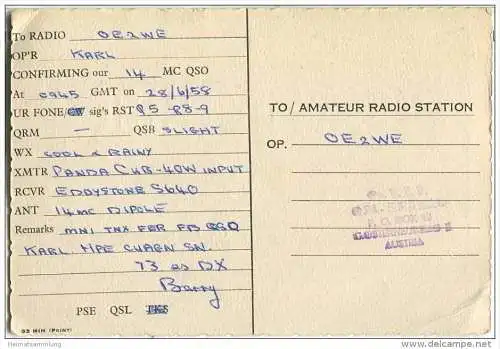 To RADIO OE2WE
OP'R KARL
CONFIRMING our 14 MC QSO
At 0945 GMT on 28/6/58
UR FONE/CW sig's RST Q5 - R8-9
QRM — QSB SLIGHT
WX COOL & RAINY
XMTR PANDA CUB - 40W INPUT
RCVR EDDYSTONE S640
ANT 14MC DIPOLE
Remarks MNI TNX FER FB QSO
KARL. HPE CUAGN SN.
73 es DX
Barry
PSE QSL TKS
93 MIN (PRINT)
TO / AMATEUR RADIO STATION
OP. OE2WE
AUSTRIA